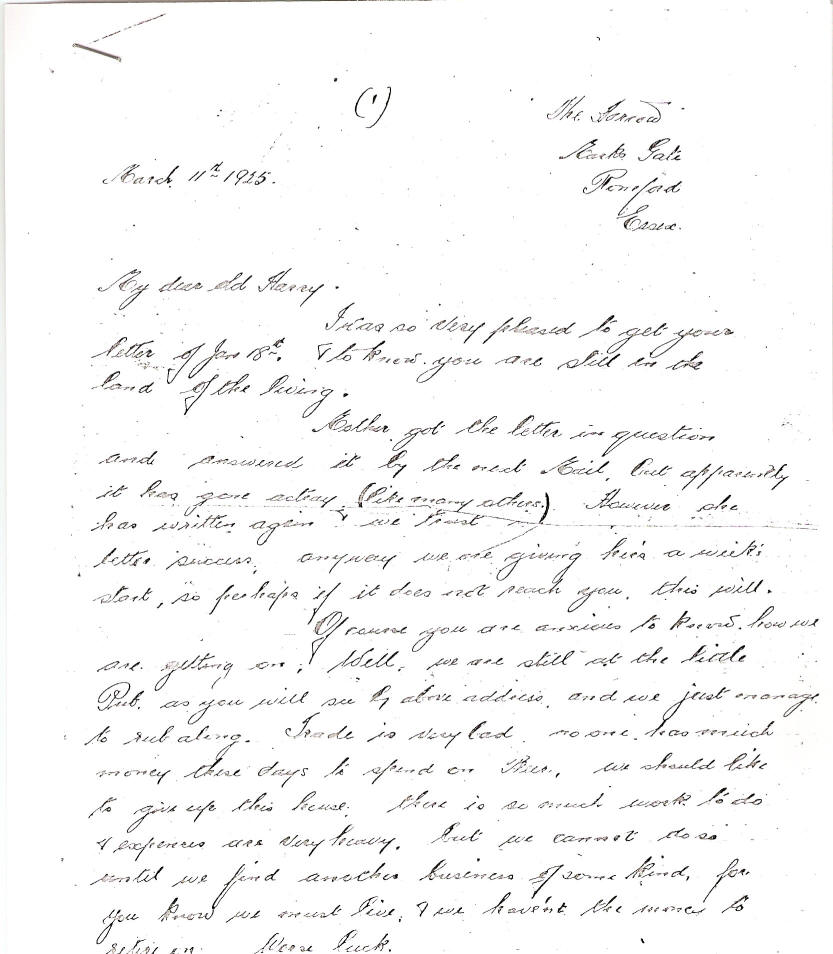 (1)
The Harrow
Marks Gate
Romford
Essex.
March 11th 1925.
My dear old Harry.
I was so very pleased to get your
letter of Jan 18th. & to know you are still in the
land of the living.
Mother got the letter in question
and answered it by the next Mail, but apparently
it has gone astray (like many others.) However she
has written again & we trust
better success, anyway we are giving hers a week's
start, so perhaps if it does not reach you, this will.
Of course you are anxious to know how we
are getting on, Well, we are still at the little
Pub. as you will see by above address, and we just manage
to rub along. Trade is very bad, no one has much
money these days to spend on Beer, we should like
to give up this house, there is so much work to do
& expenses are very heavy, but we cannot do so
until we find another business of some kind, for
you know we must live, & we havent the money to
retire on. Worse luck.